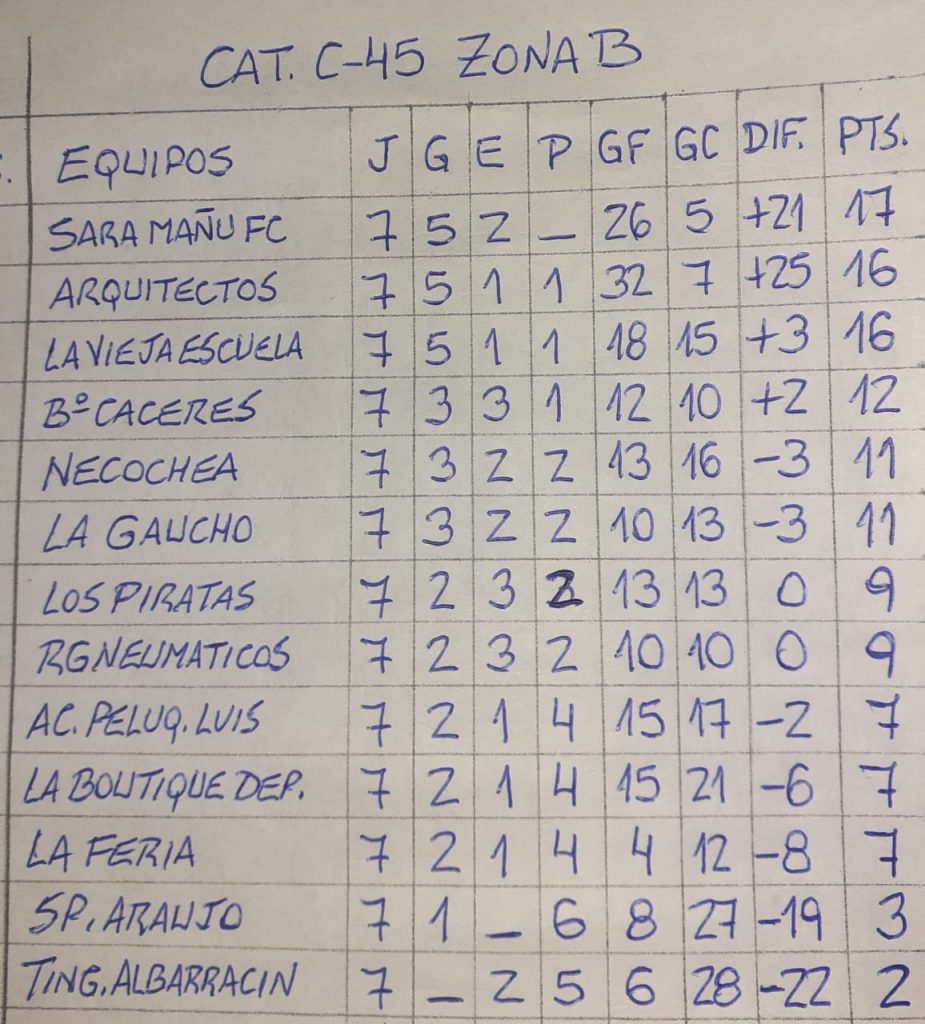 CAT. C-45 ZONA B
EQUIPOS J G E P GF GC DIF. PTS.
SARA MAÑU FC 7 5 2 _ 26 5 +21 17
ARQUITECTOS 7 5 1 1 32 7 +25 16
LA VIEJA ESCUELA 7 5 1 1 18 15 +3 16
Bº CACERES 7 3 3 1 12 10 +2 12
NECOCHEA 7 3 2 2 13 16 -3 11
LA GAUCHO 7 3 2 2 10 13 -3 11
LOS PIRATAS 7 2 3 2 13 13 0 9
RG NEUMATICOS 7 2 3 2 10 10 0 9
AC. PELUQ. LUIS 7 2 1 4 15 17 -2 7
LA BOUTIQUE DEP. 7 2 1 4 15 21 -6 7
LA FERIA 7 2 1 4 4 12 -8 7
SP. ARAUJO 7 1 _ 6 8 27 -19 3
TING. ALBARRACIN 7 _ 2 5 6 28 -22 2